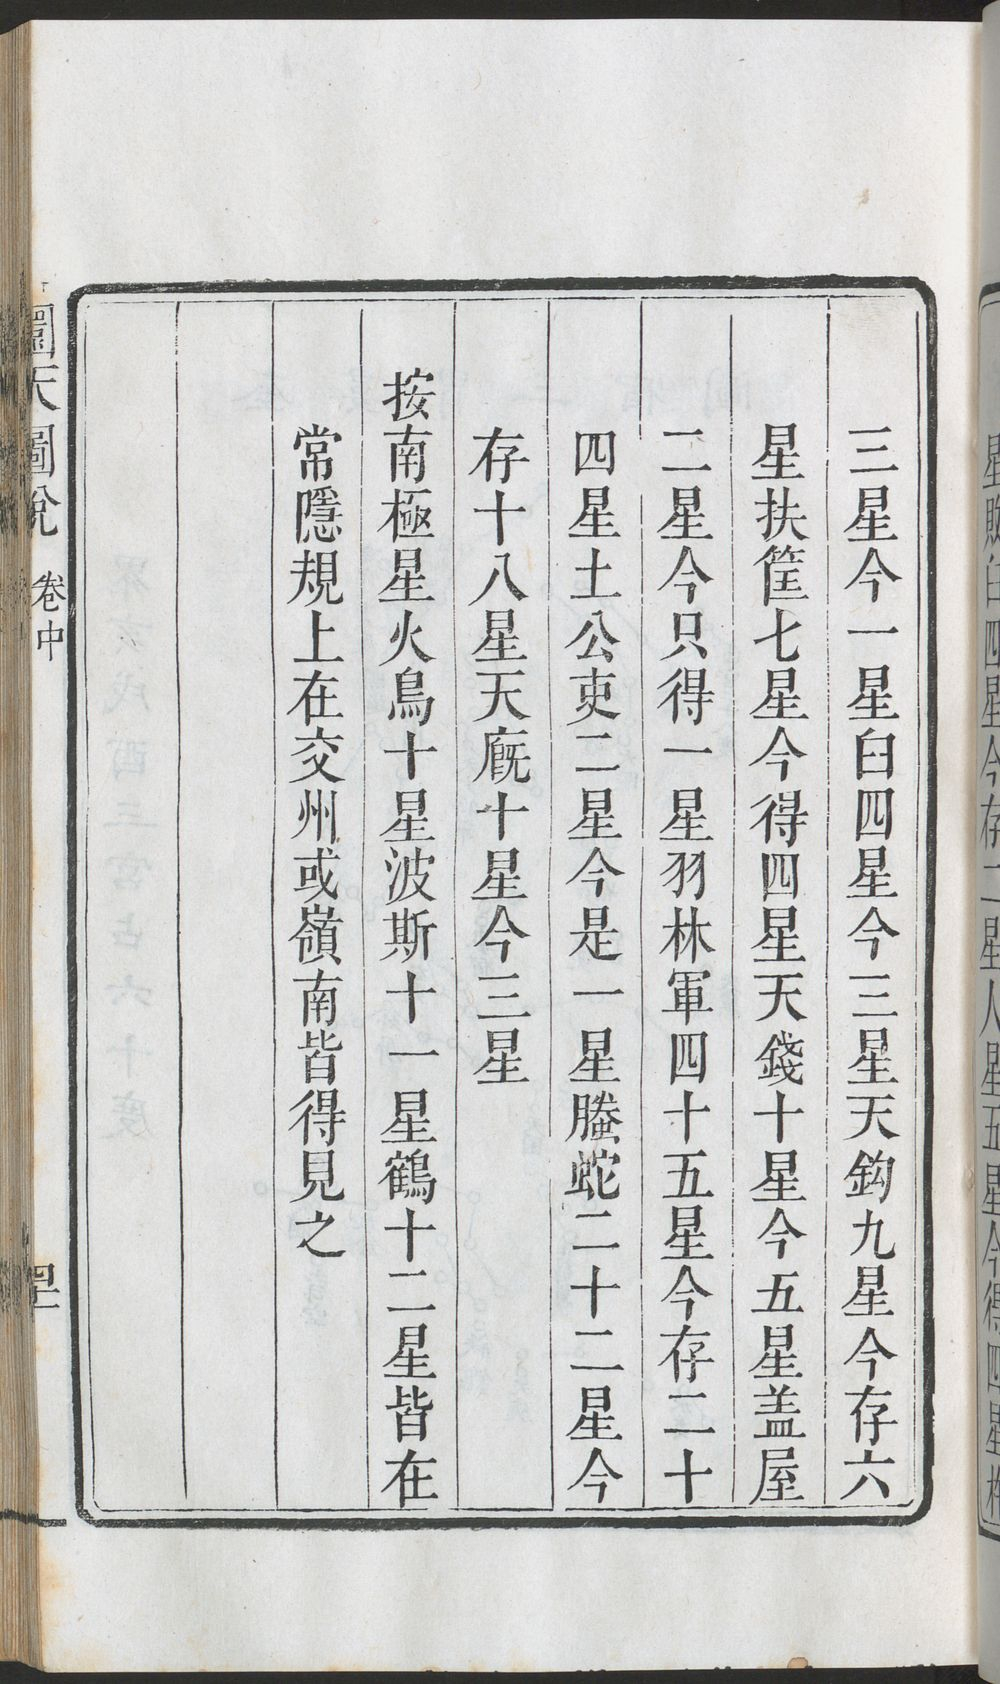 三星今一星臼四星今三星天鈎九星今存六
星扶筐七星今得四星天錢十星今五星盖屋
二星今只得一星羽林軍四十五星今存二十
四星土公吏二星今是一星螣蛇二十二星今
存十八星天廐十星今三星
按南極星火鳥十星波斯十一星鶴十二星皆在
常隱規上在交州或嶺南皆得見之
圜天圖說 卷中